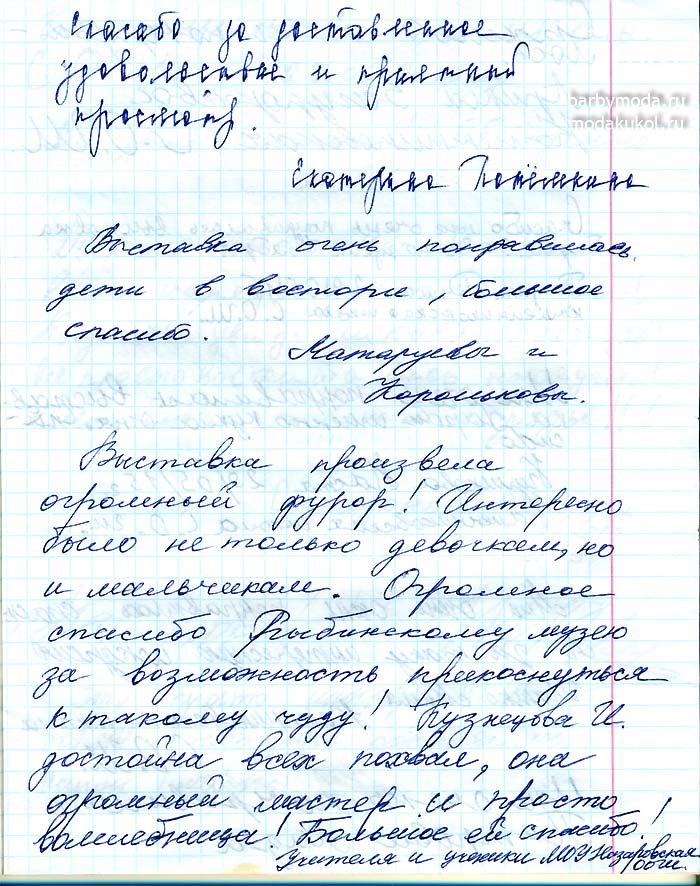 Спасибо за доставленное
удовольствие и приятный
просмотр.
barbymoda.ru
modakukol.ru
Екатерина Потёмкина
Выставка очень понравилась,
дети в восторге, большое
спасибо.
Матаруевы и
Корольковы.
Выставка произвела
огромный фурор! Интересно
было не только девочкам, но
и мальчикам. Огромное
спасибо Рыбинскому музею
за возможность прикоснуться
к такому чуду! Кузнецова И.
достойна всех похвал, она
огромный мастер и просто
волшебница! Большое ей спасибо!
Учителя и ученики МОУ Назаровская
ООШ.